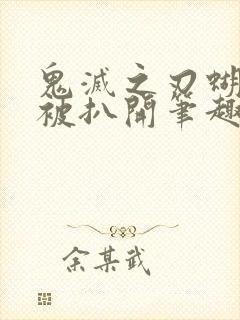 鬼滅之刃蝴
被扒開筆趣
余某武